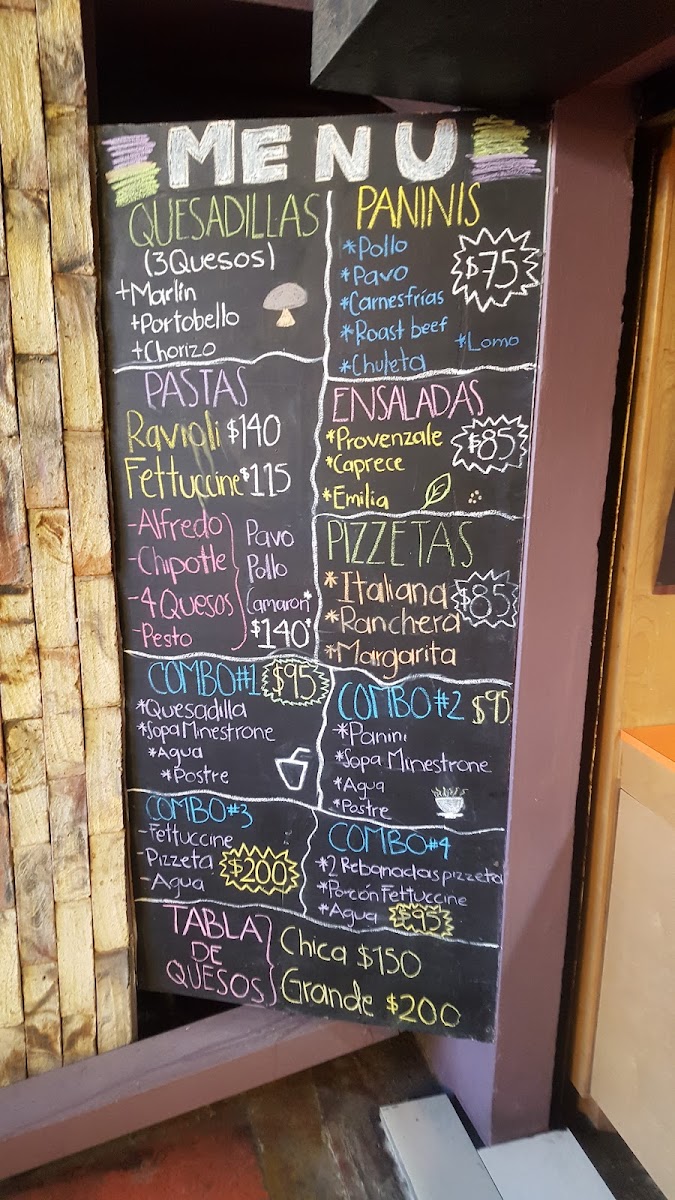 MENU
QUESADILLAS
(3Quesos)
+Marlín
+Portobello
+Chorizo
PANINIS
*Pollo
*Pavo
*Carnesfrías
*Roast beef
*Lomo
*Chuleta
$75
PASTAS
Ravioli $140
Fettuccine $115
-Alfredo
-Chipotle
-4 Quesos
-Pesto
Pavo
Pollo
Camaron*
$140*
ENSALADAS
*Provenzale
*Caprece
*Emilia
$85
PIZZETAS
*Italiana
*Ranchera
*Margarita
$85
COMBO#1 $95
*Quesadilla
*Sopa Minestrone
*Agua
*Postre
COMBO#2 $95
*Panini
*Sopa Minestrone
*Agua
*Postre
COMBO#3
-Fettuccine
-Pizzeta
-Agua
$200
COMBO#4
*2 Rebanadas pizzeta
*Porción Fettuccine
*Agua $95
TABLA
DE
QUESOS
Chica $150
Grande $200